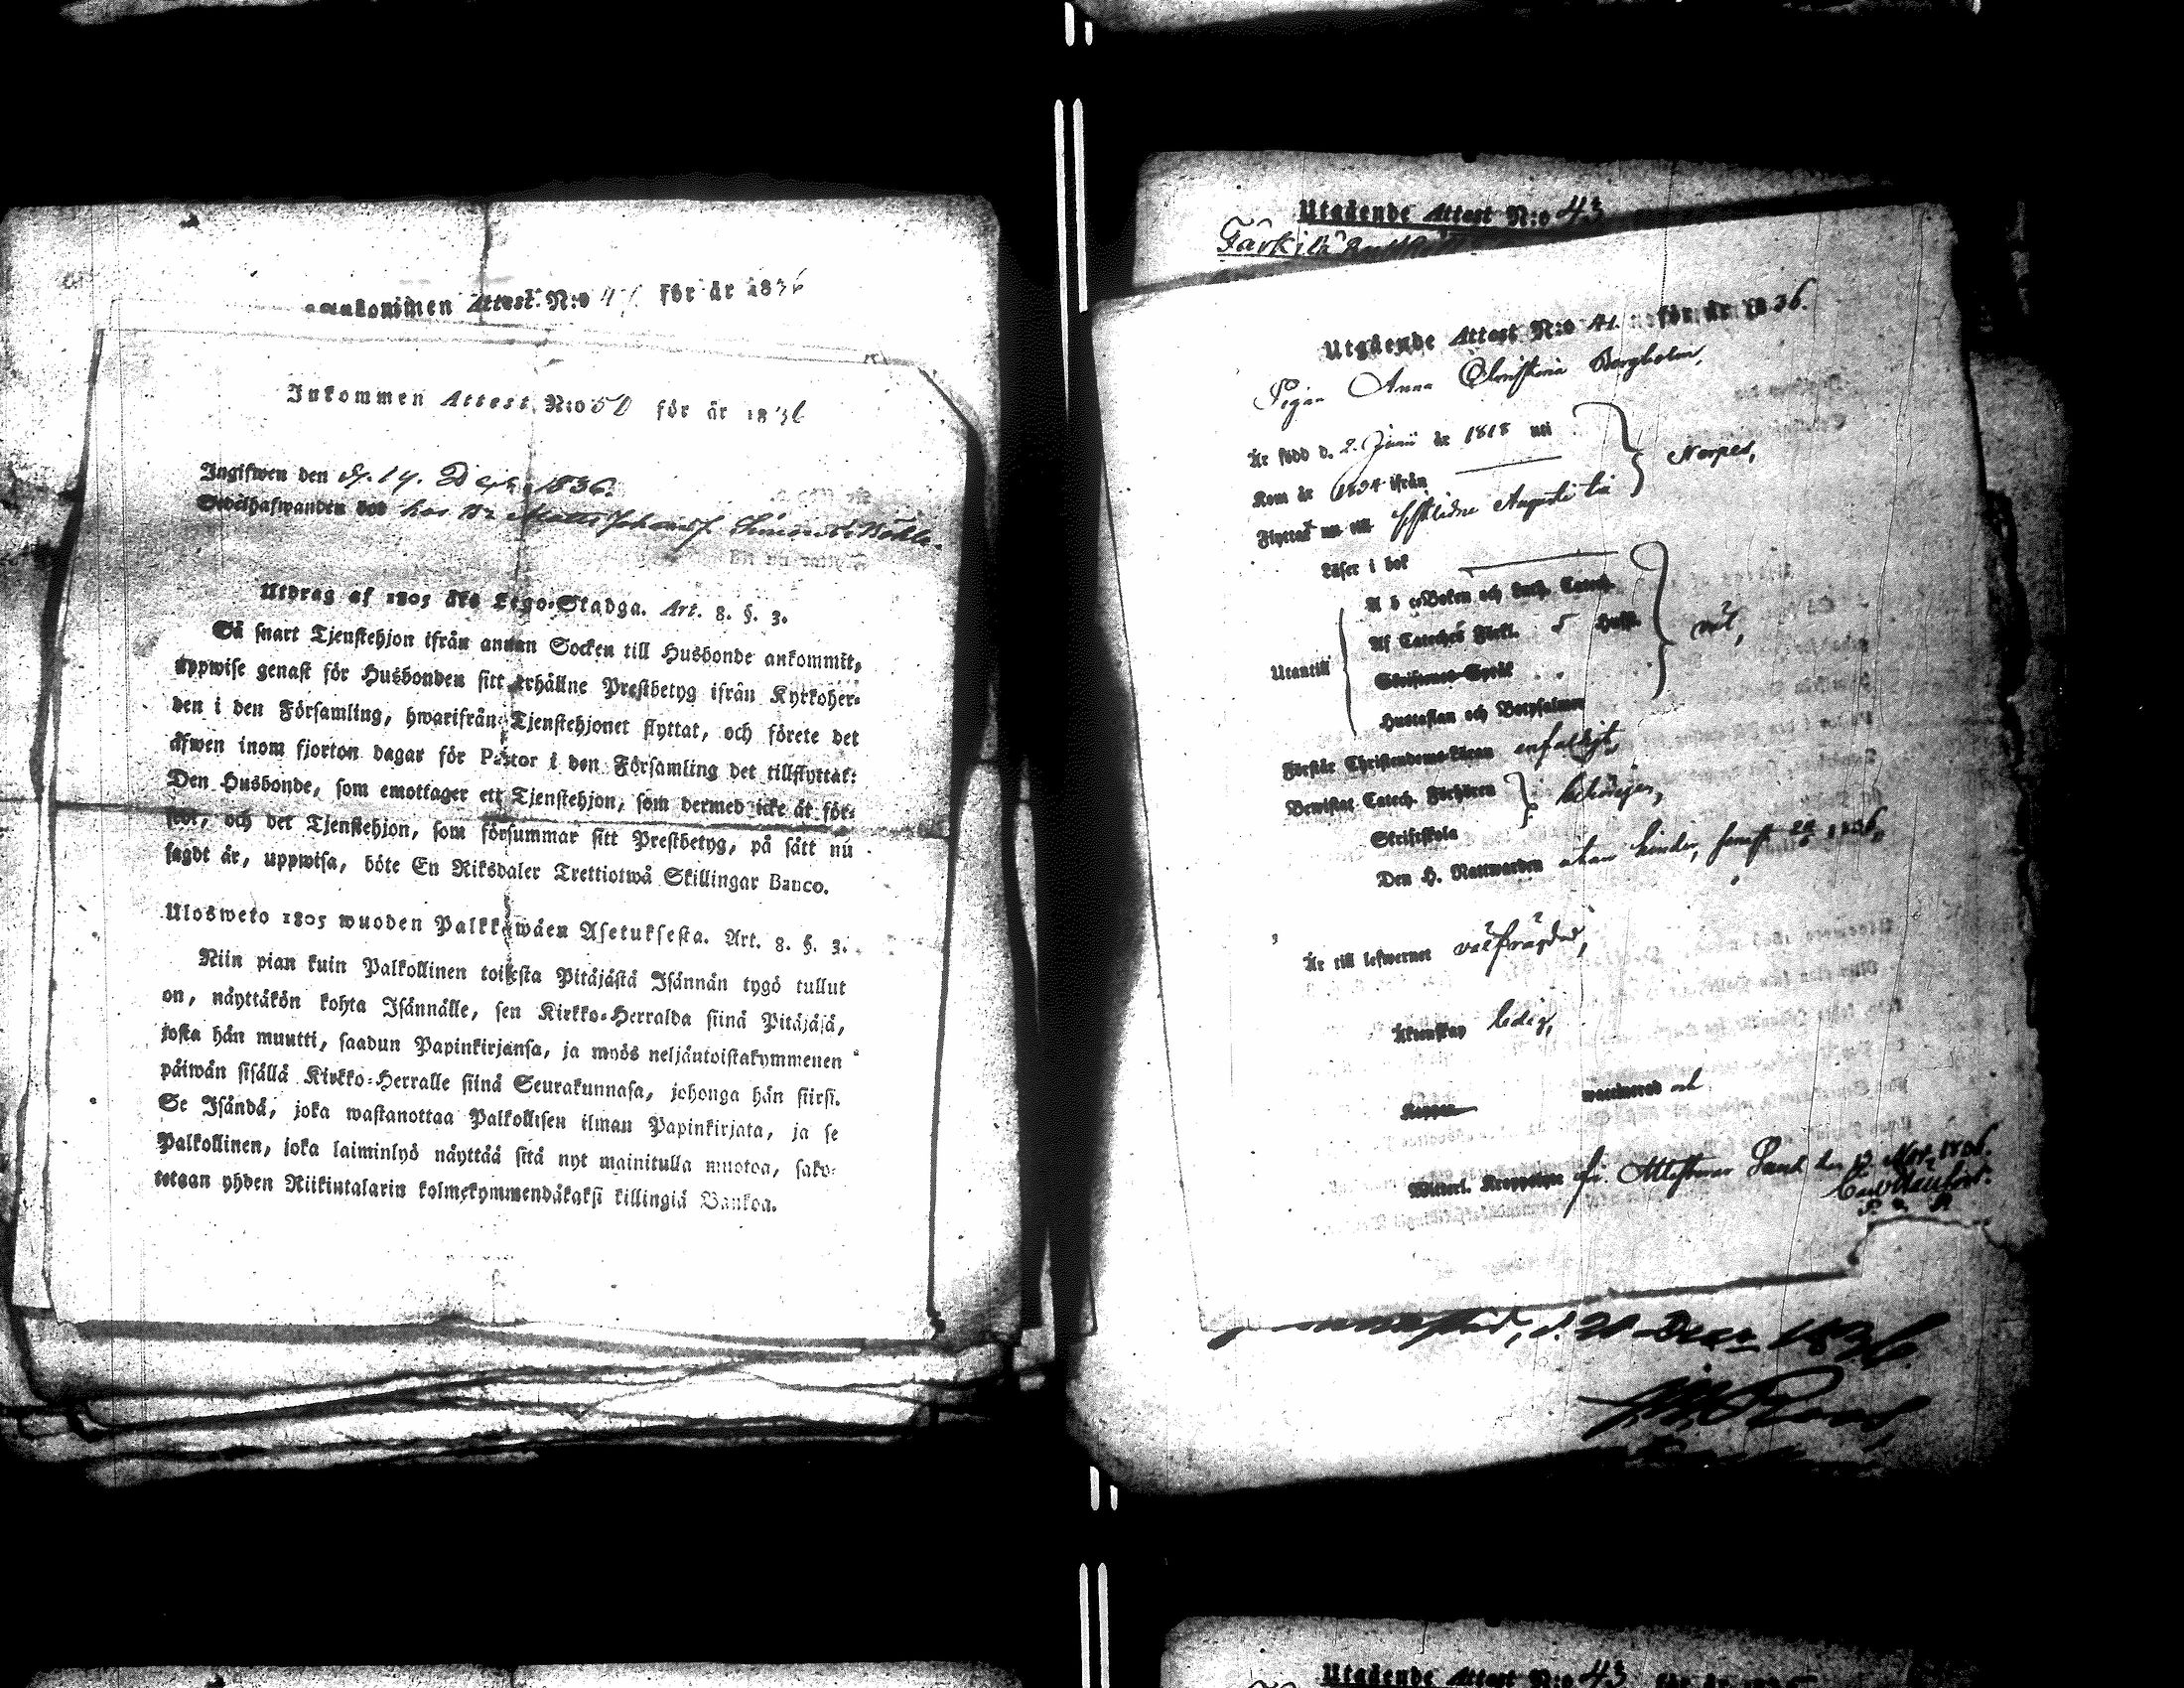 Inkommen Attest. N:o 47 för år 1836
Inkommen Attest. N:o 50 för år 1836
Ingifwen den d. 14. Dec. 1836.
hos Matts Johansf.
Utdrag af 1805 års Lego-Stadga. Art. 8. §. 3.
Så snart Tjenstehjon ifrån annan Socken till Husbonde ankommit,
uppwise genast för Husbonden sitt erhållne Prestbetyg ifrån Kyrkoher-
den i den Församling, hwarifrån Tjenstehjonet flyttat, och förete det
äfwen inom fjorton dagar för Pastor i den Församling det tillflyttat:
Den Husbonde, som emottager ett Tjenstehjon, som dermed icke är för-
sedt, och det Tjenstehjon, som försummar sitt Prestbetyg, på sätt nu
sagdt är, uppwisa, böte En Riksdaler Trettiotwå Skillingar Banco.
Ulosweto 1805 wuoden Palkkawäen Asetuksesta. Art. 8. §. 3.
Niin pian kuin Palkollinen toisesta Pitäjästä Isännän tygö tullut
on, näyttäkön kohta Isännälle, sen Kirkko-Herralda siinä Pitäjäsä,
josta hän muutti, saadun Papinkirjansa, ja myös neljäntoistakymmenen
päiwän sisällä Kirkko-Herralle siinä Seurakunnasa, johonga hän siirsi.
Se Isändä, joka wastanottaa Palkollisen ilman Papinkirjata, ja se
Palkollinen, joka laiminlyö näyttää sitä nyt mainitulla muotoa, sako-
tetaan yhden Riikintalarin kolmekymmendäkaksi killingiä Bankoa.
Utgående Attest N:o 43
Utgående Attest N:o 41. för år 1836.
Pigan Anna Christina Borgholm,
Är född d. 2. Junii år 1818 uti
Kom år 1834 ifrån
Nerpes,
Flyttat nu till
Läser i bok
A b c-Boken och Luth. Catech.
Af Cateches Förkl. 5 Hufst.
Utantill
Skriftenes Språk
nöt,
Hustaflan och Botpsalmer
Förstår Christendoms-Läran enfaldigt,
Bewistat Catech. Förhören
Skriftskola
Den H. Nattwarden utan hinder,
Är till lefwernet välfrägdad,
Äktenskap ledig,
Koppor
waccinerad och
d. 20 Dec. 1836
Utgående Attest N:o 43